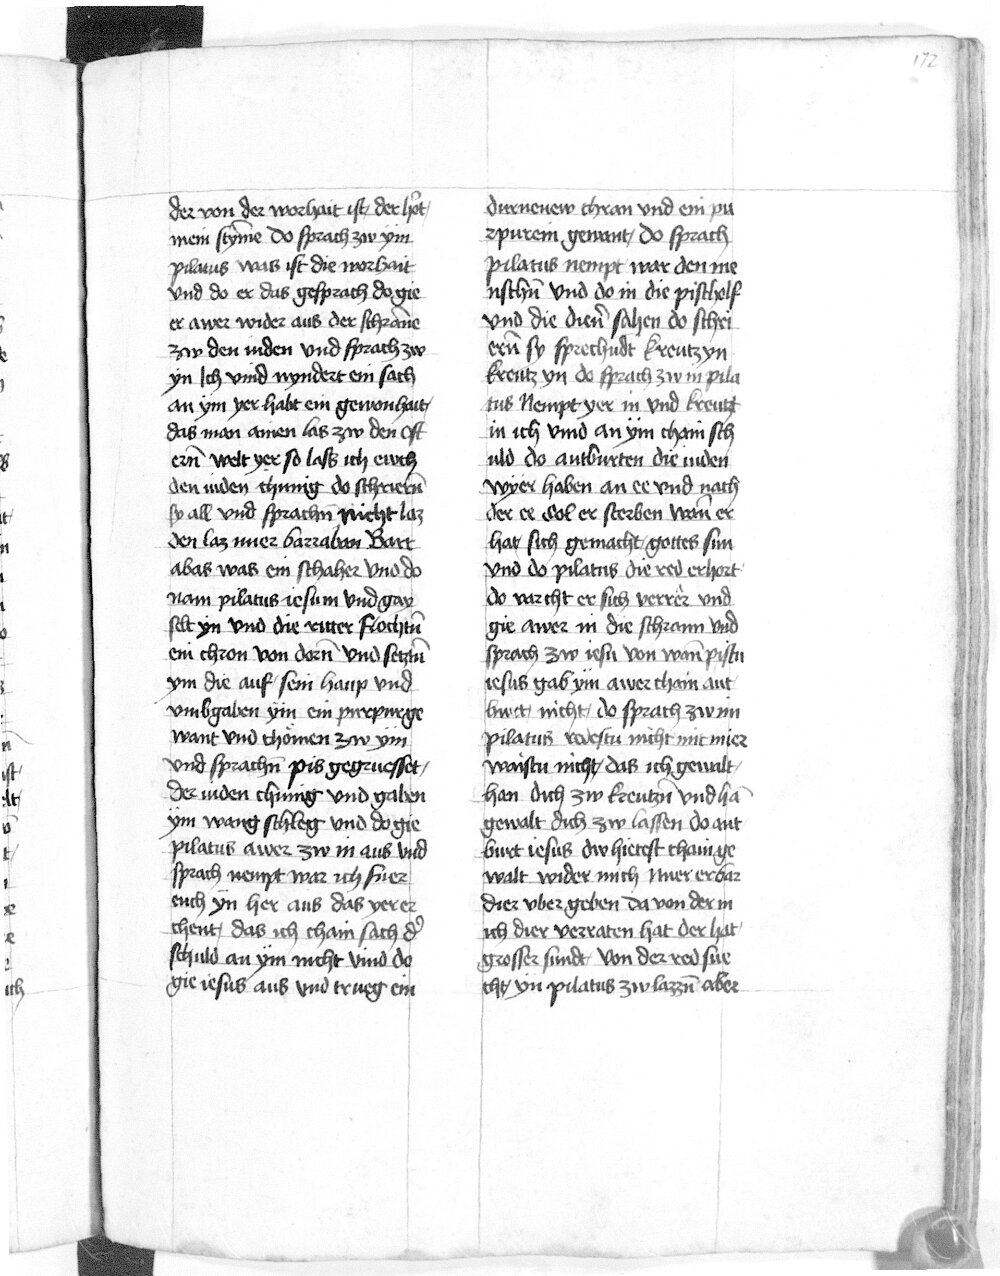 172
der von der worhait ist der hört
mein stÿme Do sprach zw ym
pilatus was ist die worhait
vnd do er das gesprach do gie
er awer wider aus der schrāne
zw den iuden vnd sprach zw
yn Ich vind nyndert ein sach
an ym yer habt ein gewonhait
das man ainen las zw den ost
erñ welt yer so lass ich ewch
den iuden chunig do schrierñ
sy all vnd sprachñ nicht laz
den laz nuer barraban Barr
abas was ein schaher vnd do
nam pilatus iesum vnd gay
selt yn vnd die ritter flochtñ
ein chron von dorñ vnd setztñ
ym die auf sein haup vnd
vmbgaben ym ein purpurge
want vnd chömen zw ym
vnd sprachñ pis gegruesset
der iuden chunig vnd gaben
ym wang schleg vnd do gie
pilatus awer zw in aus vnd
sprach nempt war ich fuer
euch yn her aus das yer er
chent das ich chain sach d'
schuld an ym nicht vind do
gie iesus aus vnd trueg ein
durnenew chran vnd ein pu
rpurein gewant do sprach
pilatus nempt war den me
nschñ vnd do in die pischolf
vnd die dieñ sahen do schri
erñ sy sprechudt kreutz yn
kreutz yn do sprach zw in pila
tus Nempt yer in vnd kreutzt
in ich vind an ym chain sch
uld do antburten die iuden
wyer haben an ee vnd nach
der ee sol er sterben wañ er
hat sich gemacht gottes sun
vnd do pilatus die red erhort
do varcht er sich verrer vnd
gie awer in die schrann vnd
sprach zw iesu von wañ pistu
iesus gab ym awer chain ant
burt nicht do sprach zw im
pilatus redestu nicht mit mier
waistu nicht das ich gewalt
han dich zw kreutzñ vnd hā
gewalt dich zw lassen do ant
burt iesus dw hietest chain ge
walt wider mich nuer er bar
dier vber geben Da von der m
ich dier verraten hat der hat
grosser sundt von der red sue
cht yn pilatus zw lazzñ aber